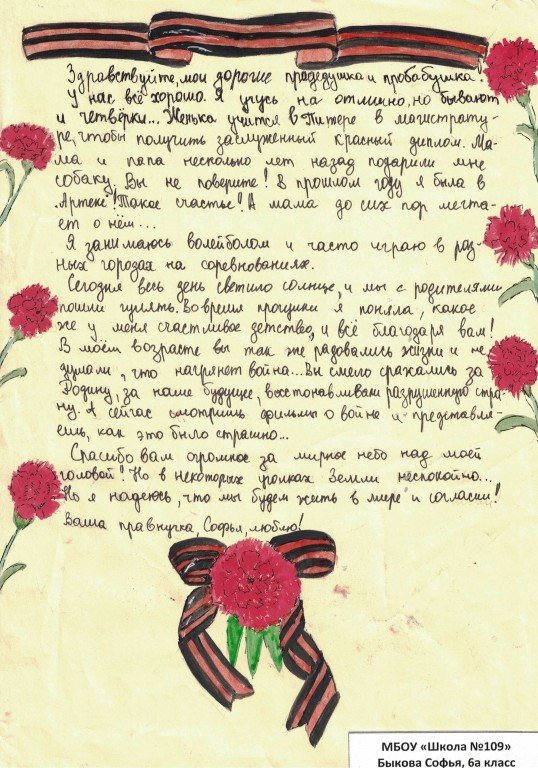 Здравствуйте, мои дорогие прадедушка и пробабушка!
У нас всё хорошо. Я учусь на отлично, но бывают
и четвёрки... Женька учится в Питере в магистрату-
ре, чтобы получить заслуженный красный диплом. Ма-
ма и папа несколько лет назад подарили мне
собаку. Вы не поверите! В прошлом году я была в
„Артеке"! Такое счастье! А мама до сих пор мечта-
ет о нём...
Я занимаюсь волейболом и часто играю в раз-
ных городах на соревнованиях.
Сегодня весь день светило солнце, и мы с родителями
пошли гулять. Во время прогулки я поняла, какое
же у меня счастливое детство, и всё благодаря вам!
В моём возрасте вы так же радовались жизни и не
думали, что нагрянет война... Вы смело сражались за
Родину, за наше будущее, восстонавливали разрушенную стра-
ну. А сейчас смотришь фильмы о войне и представля-
ешь, как это было страшно...
Спасибо вам огромное за мирное небо над моей
головой! Но в некоторых уголках Земли неспокойно...
Но я надеюсь, что мы будем жить в мире и согласии!
Ваша правнучка, Софья, люблю!
МБОУ «Школа №109»
Быкова Софья, 6а класс